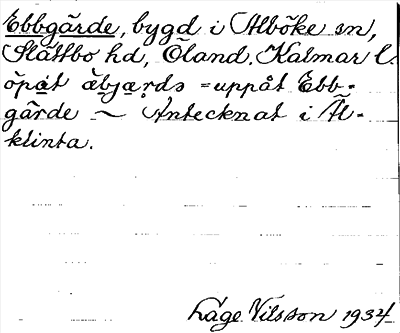 Ebbgärde, bygd i Alböke sn,
Slättbo hd, Öland. Kalmar l.
öpat äbjærds = uppåt Ebb-
gärde ~ Antecknat i Ål-
klinta.
Lage Nilsson 1934.